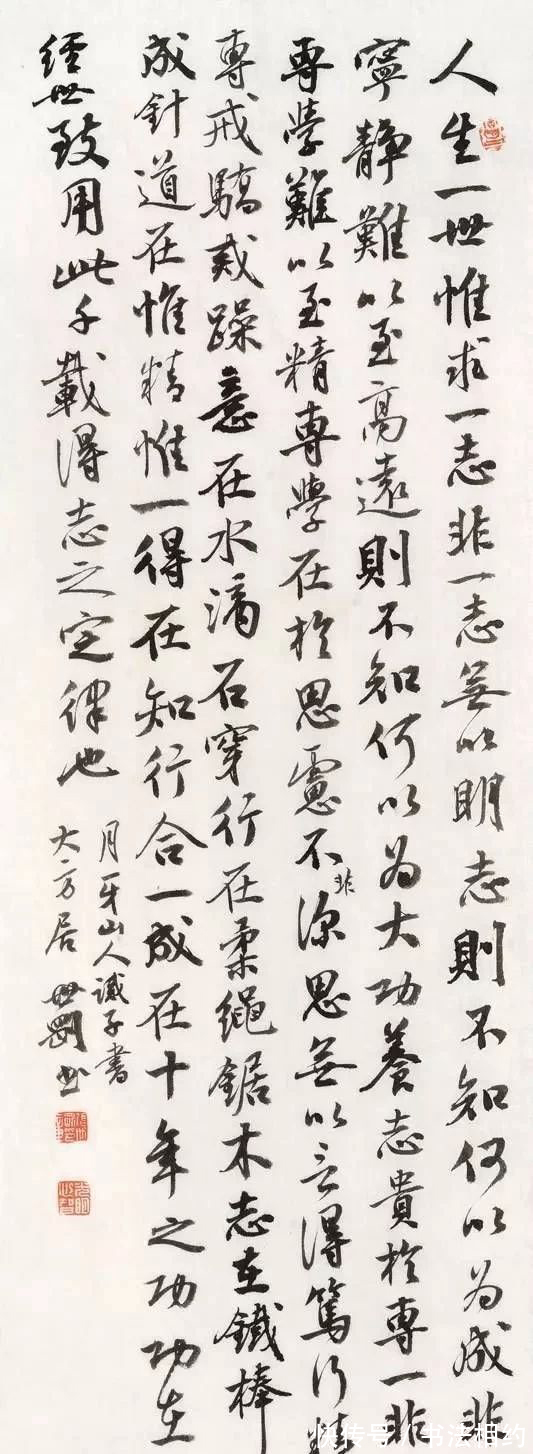 人生一世惟求一志非一志無以明志則不知何以為成非
寧靜難以至高遠則不知何以為大功養志貴於專一非
專學難以至精專學在於思慮不非深思無以言得篤行精
專戒驕戒躁意在水滴石穿行在柔繩鋸木志在鐵棒
成針道在惟精惟一得在知行合一成在十年之功功在
經世致用此千載得志之定律也
月牙山人識子書
大方居世剛书
快传号/书法相约